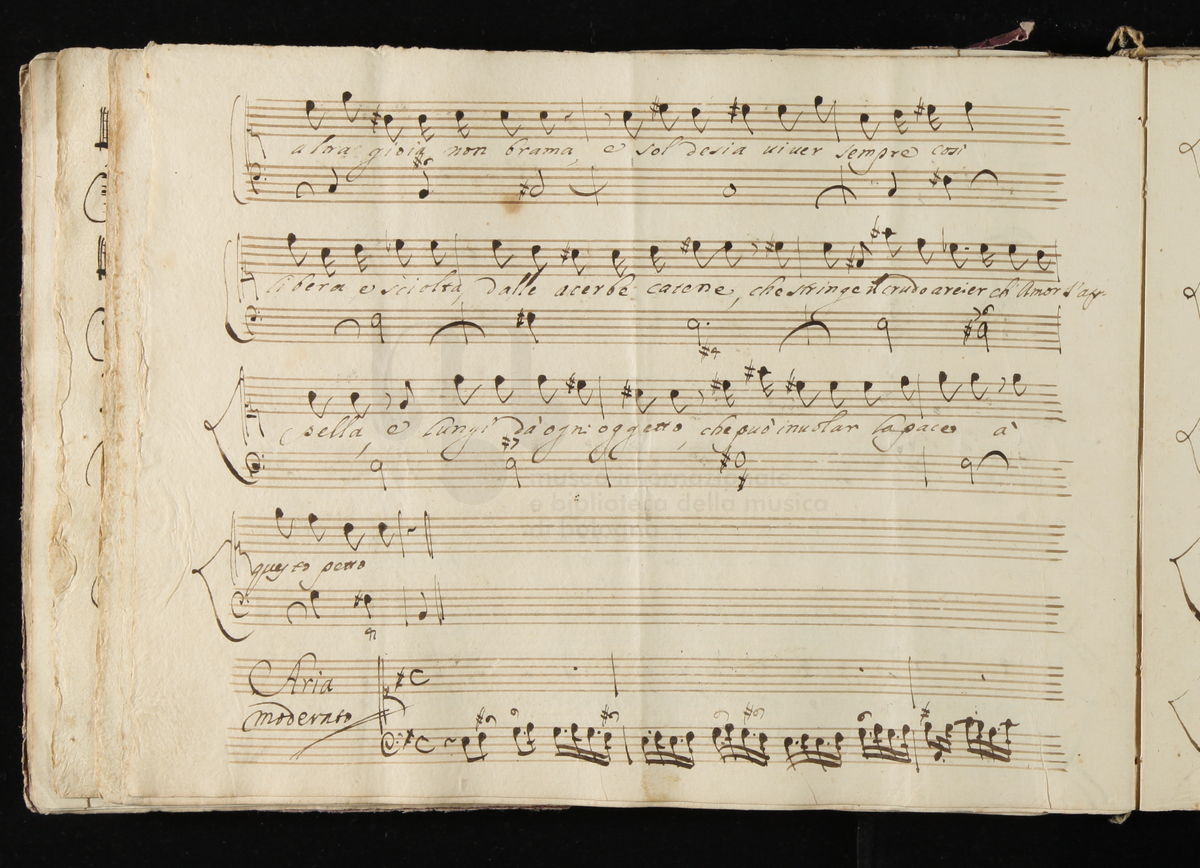 altra gioia non brama, e sol desia viver sempre così
libera, e sciolta, Dalle acerbe catene, che stringe il crudo arcier ch'Amor s'ap-
pella, e lungi dà ogni oggetto, che può involar la pace à
questo petto
Aria
moderato
museo internazionale
e biblioteca della musica
di bologna